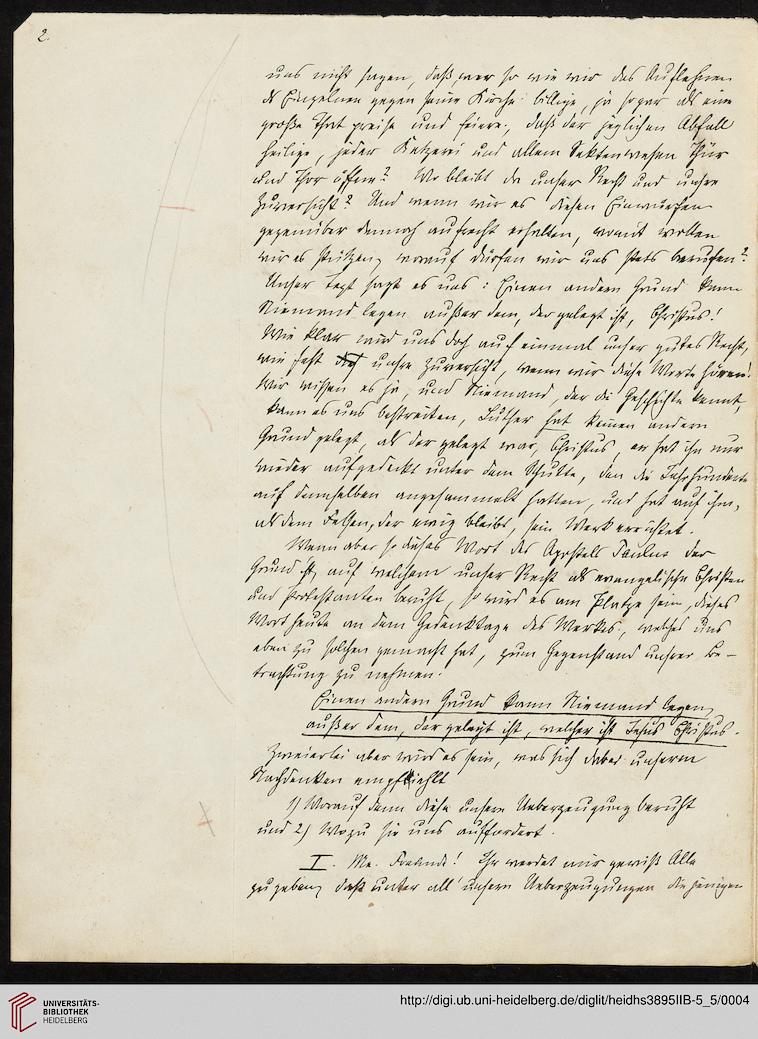 2.
uns nicht sagen, daß wer so wie wir das Auflehnen
des Einzelnen gegen seine Kirche billige, ja sogar als eine
große That preise und feiere, daß der jeglichen Abfall
heilige, jeder Ketzerei und allem Sektenwesen Thür
und Thor öffne? Wo bleibt da unser Recht und unsre
Zuversicht? Und wenn wir es diesen Einwürfen
gegenüber dennoch aufrecht erhalten, womit wollen
wir es stützen, worauf dürfen wir uns stets berufen?
Unser Text sagt es uns: Einen andern Grund kann
Niemand legen außer dem, der gelegt ist, Christus!
Wie klar wird uns doch auf einmal unser gutes Recht,
wie fest unsre Zuversicht, wenn wir diese Worte hören!
Wir wissen es ja, und Niemand, der die Geschichte kennt,
kann es uns bestreiten, Luther hat keinen andern
Grund gelegt, als der gelegt war, Christus, er hat ihn nur
wieder aufgedeckt unter dem Schutte, den die Jahrhunderte
auf demselben angesammelt hatten, und hat auf ihm,
als dem Felsen, der ewig bleibt, sein Werk errichtet.
Wenn aber so dieses Wort des Apostels Paulus der
Grund ist, auf welchem unser Recht als evangelische Christen
und Protestanten beruht, so wird es am Platze sein, dieses
Wort heute an dem Gedenktage des Werkes, welches uns
eben zu solchen gemacht hat, zum Gegenstand unsrer Be-
trachtung zu nehmen.
Einen andern Grund kann Niemand legen,
außer dem, der gelegt ist, welcher ist Jesus Christus.
Zweierlei aber wird es sein, was sich dabei unserm
Nachdenken empfiehlt
1) Worauf denn diese unsere Ueberzeugung beruht
und 2) Wozu sie uns auffordert.
I. Me. Freunde! Ihr werdet mir gewiß Alle
zugeben, daß unter all' unsern Ueberzeugungen diejenigen
UNIVERSITÄTS-
BIBLIOTHEK
HEIDELBERG
http://digi.ub.uni-heidelberg.de/diglit/heidhs3895IIB-5_5/0004